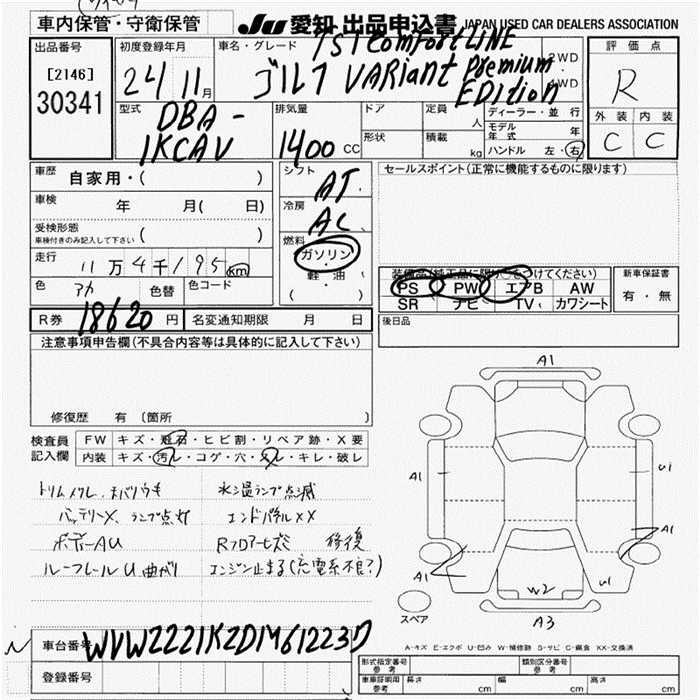 車内保管・守衛保管
JU 愛知 出品申込書 JAPAN USED CAR DEALERS ASSOCIATION
出品番号
[2146]
30341
初度登録年月
24 11月
車名・グレード
TSI Comfort LINE
ゴルフ VARiant Premium EDItion
2WD
4WD
評価点
R
外装 内装
C C
型式
DBA-
1KCAV
排気量
1400 CC
ドア
定員 人
形状
積載 kg
ディーラー・並行
モデル年式 年
ハンドル 左・右
車歴 自家用・( )
車検 年 月( 日)
受検形態
車検付きのみ記入して下さい ( )
走行 11万4千195km
色 アカ 色替 色コード
シフト AT
冷房 AC
燃料
ガソリン
・
軽油
( )
セールスポイント(正常に機能するものに限ります)
装備品(純正品に限り○をつけてください)
PS PW エアB AW
SR ナビ TV カワシート
新車保証書
有・無
R券 18620円 名変通知期限 月 日
後日品
注意事項申告欄(不具合内容等は具体的に記入して下さい)
修復歴 有 (箇所 )
検査員
記入欄
FW キズ・飛石・ヒビ割・リペア跡・X要
内装 キズ・汚レ・コゲ・穴・スレ・キレ・破レ
トリムメクレ、ネバリウキ 水温ランプ点滅
バッテリーX、ランプ点灯 エンドパネルXX
ボデーAU Rフロアーヒズミ 修復
ルーフレールU曲がり エンジン止まる(充電系不良?)
A1
A1
U1
A1
A1
W2
U1
A3
スペア
A-キズ E-エクボ U-凹み W-補修跡 S-サビ C-腐食 XX-交換済
車台番号 WVWZZZ1KZDM61223D
登録番号
形式指定番号 参考
類別区分番号 参考
車庫証明用 参考 長さ cm 幅 cm 高さ cm